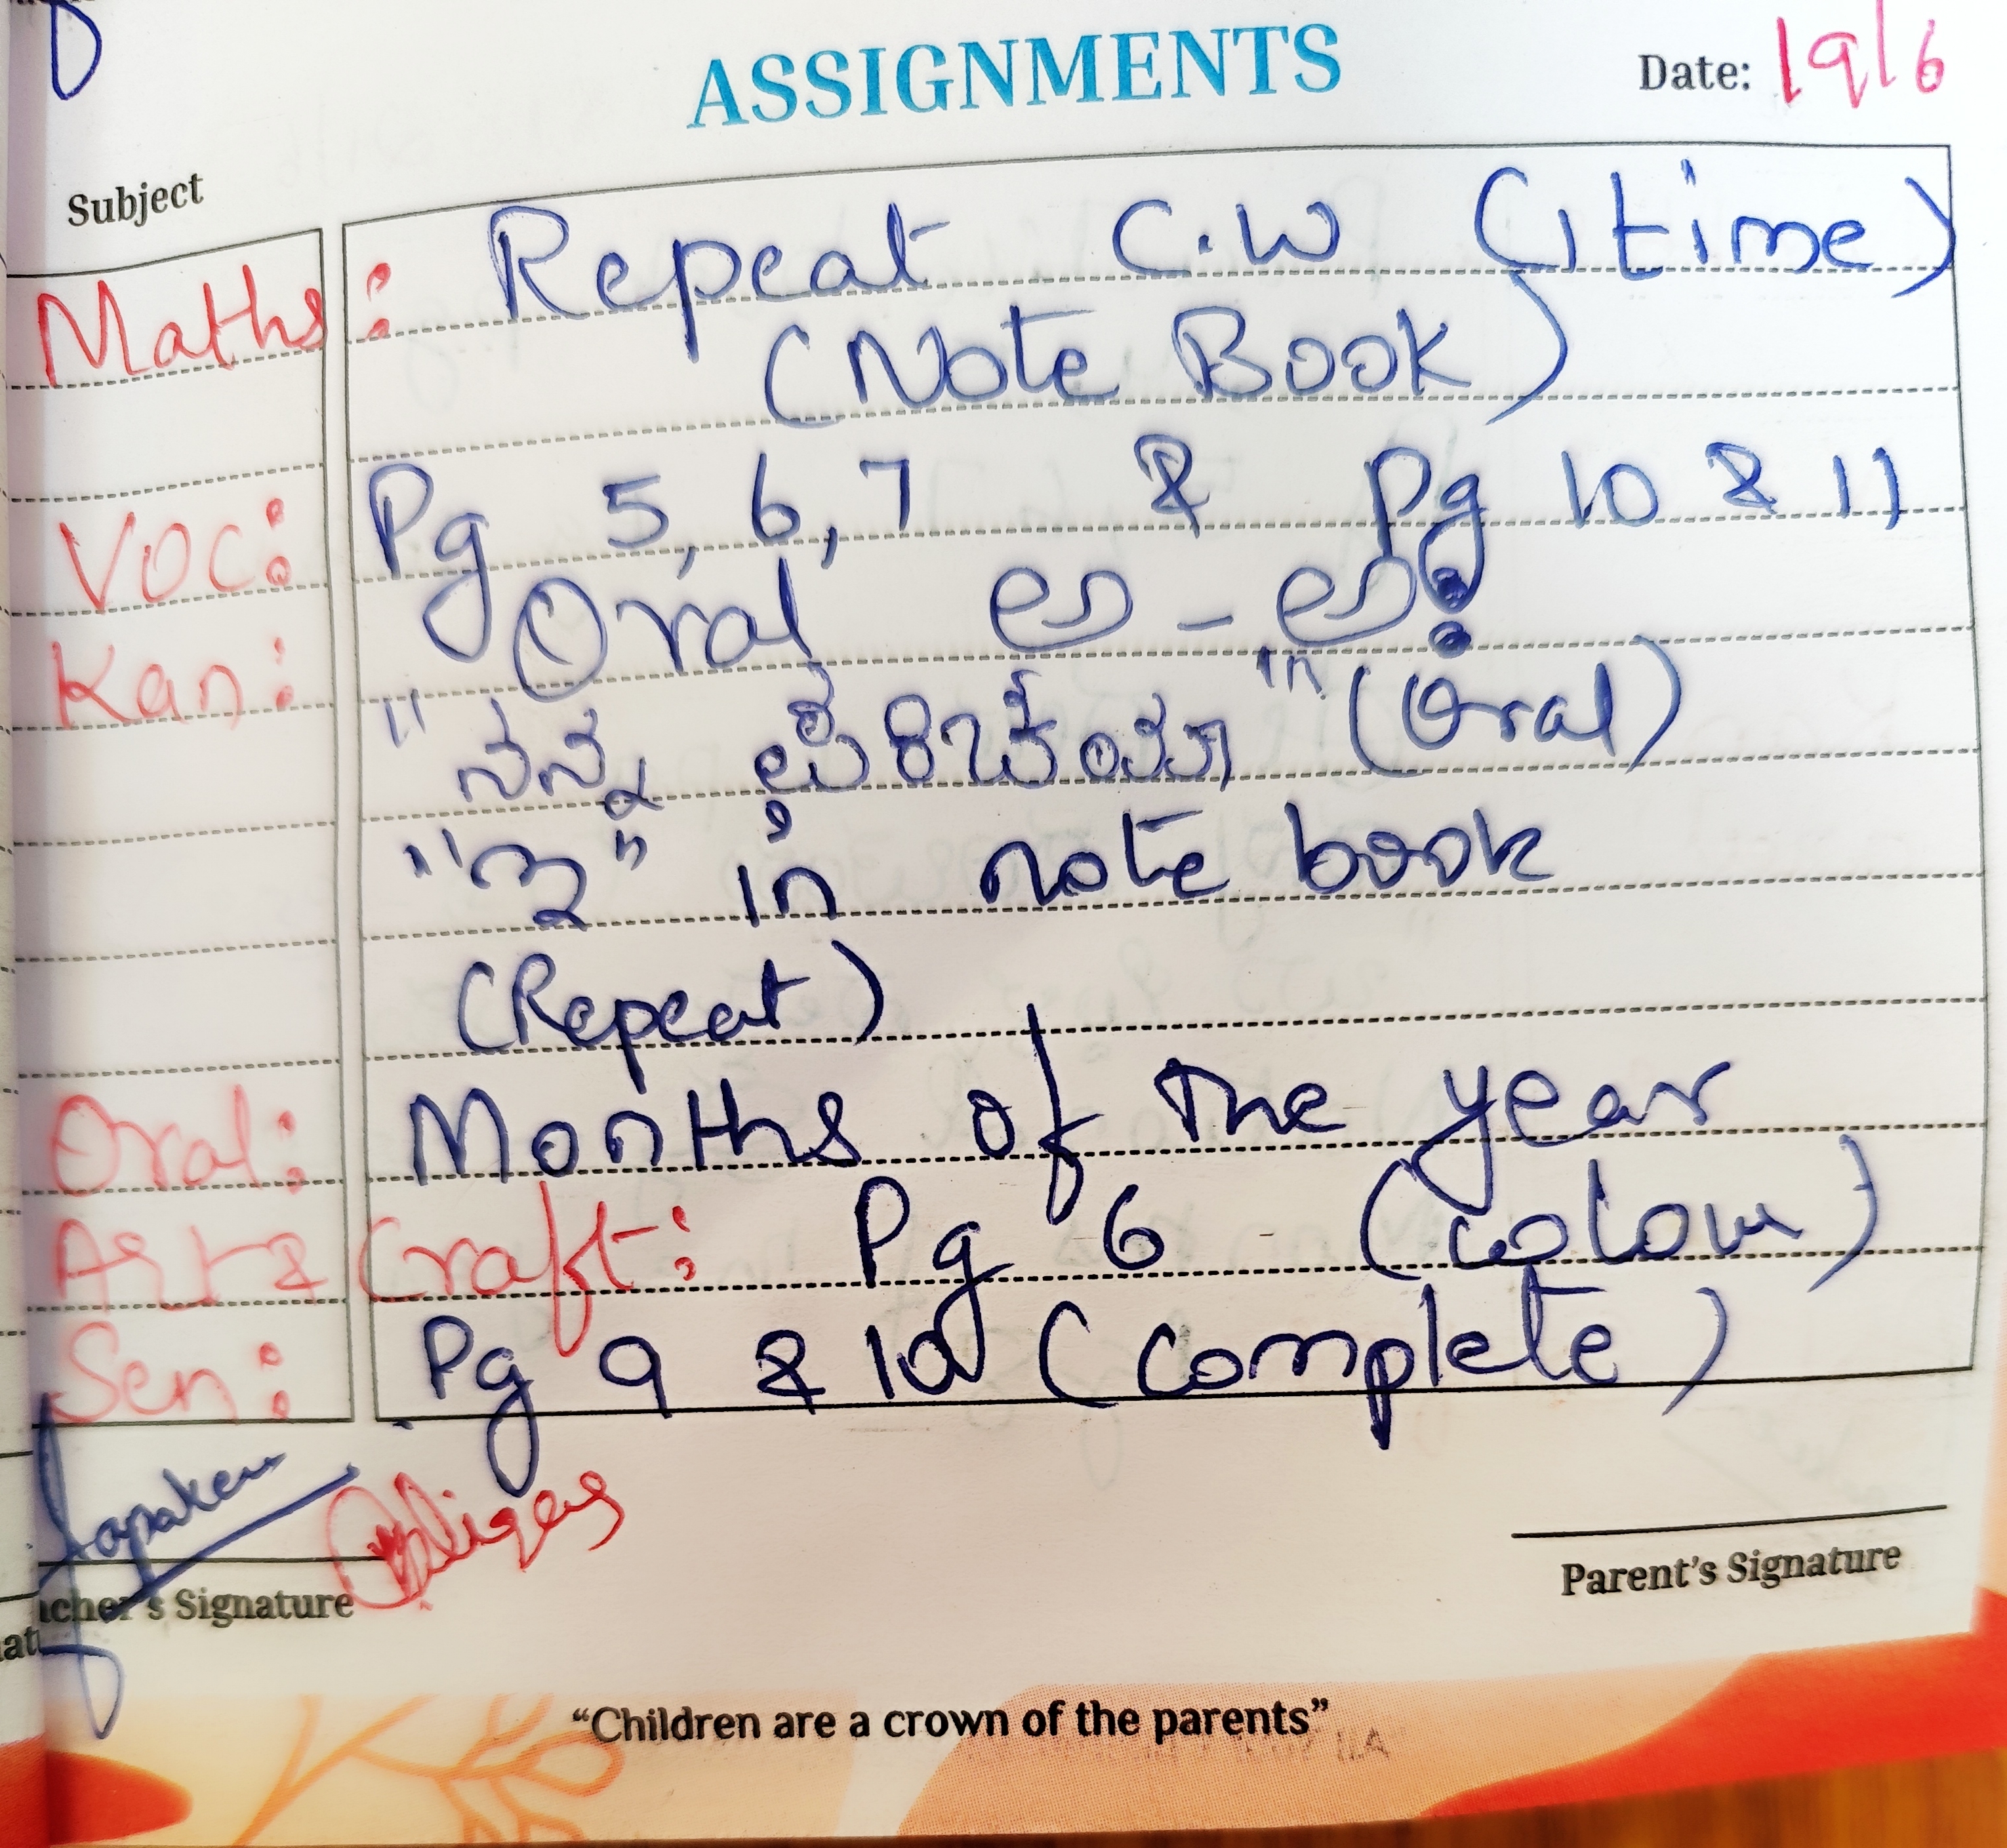 ASSIGNMENTS
Date: 19/6
Subject
Maths: Repeat C.W (1 time)
(Note Book)
Voc: Pg 5, 6, 7 & Pg 10 & 11
Kan: Oral ಅ - ಅಃ
"ನನ್ನ ಪರಿಚಯ" (Oral)
in note book
(Repeat)
Oral: Months of the year
Art & Craft: Pg 6 (colour)
Sen: Pg 9 & 10 (Complete)
Signature
Parent's Signature
"Children are a crown of the parents"